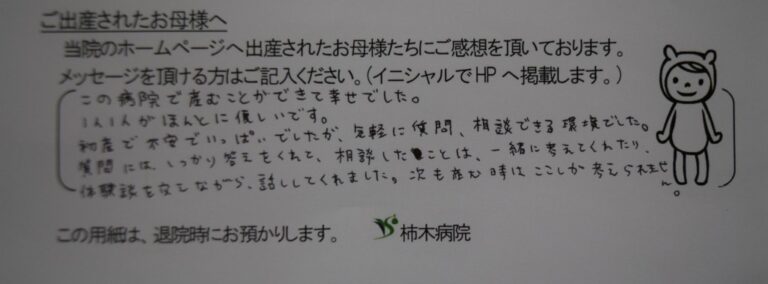 ご出産されたお母様へ
当院のホームページへ出産されたお母様たちにご感想を頂いております。
メッセージを頂ける方はご記入ください。(イニシャルでHPへ掲載します。)
この病院で産むことができて幸せでした。
1人1人がほんとに優しいです。
初産で不安でいっぱいでしたが、気軽に質問、相談できる環境でした。
質問には、しっかり答えをくれて、相談したことは、一緒に考えてくれたり、
体験談を交えながら、話ししてくれました。次も産む時はここしか考えられません。
この用紙は、退院時にお預かりします。 柿木病院